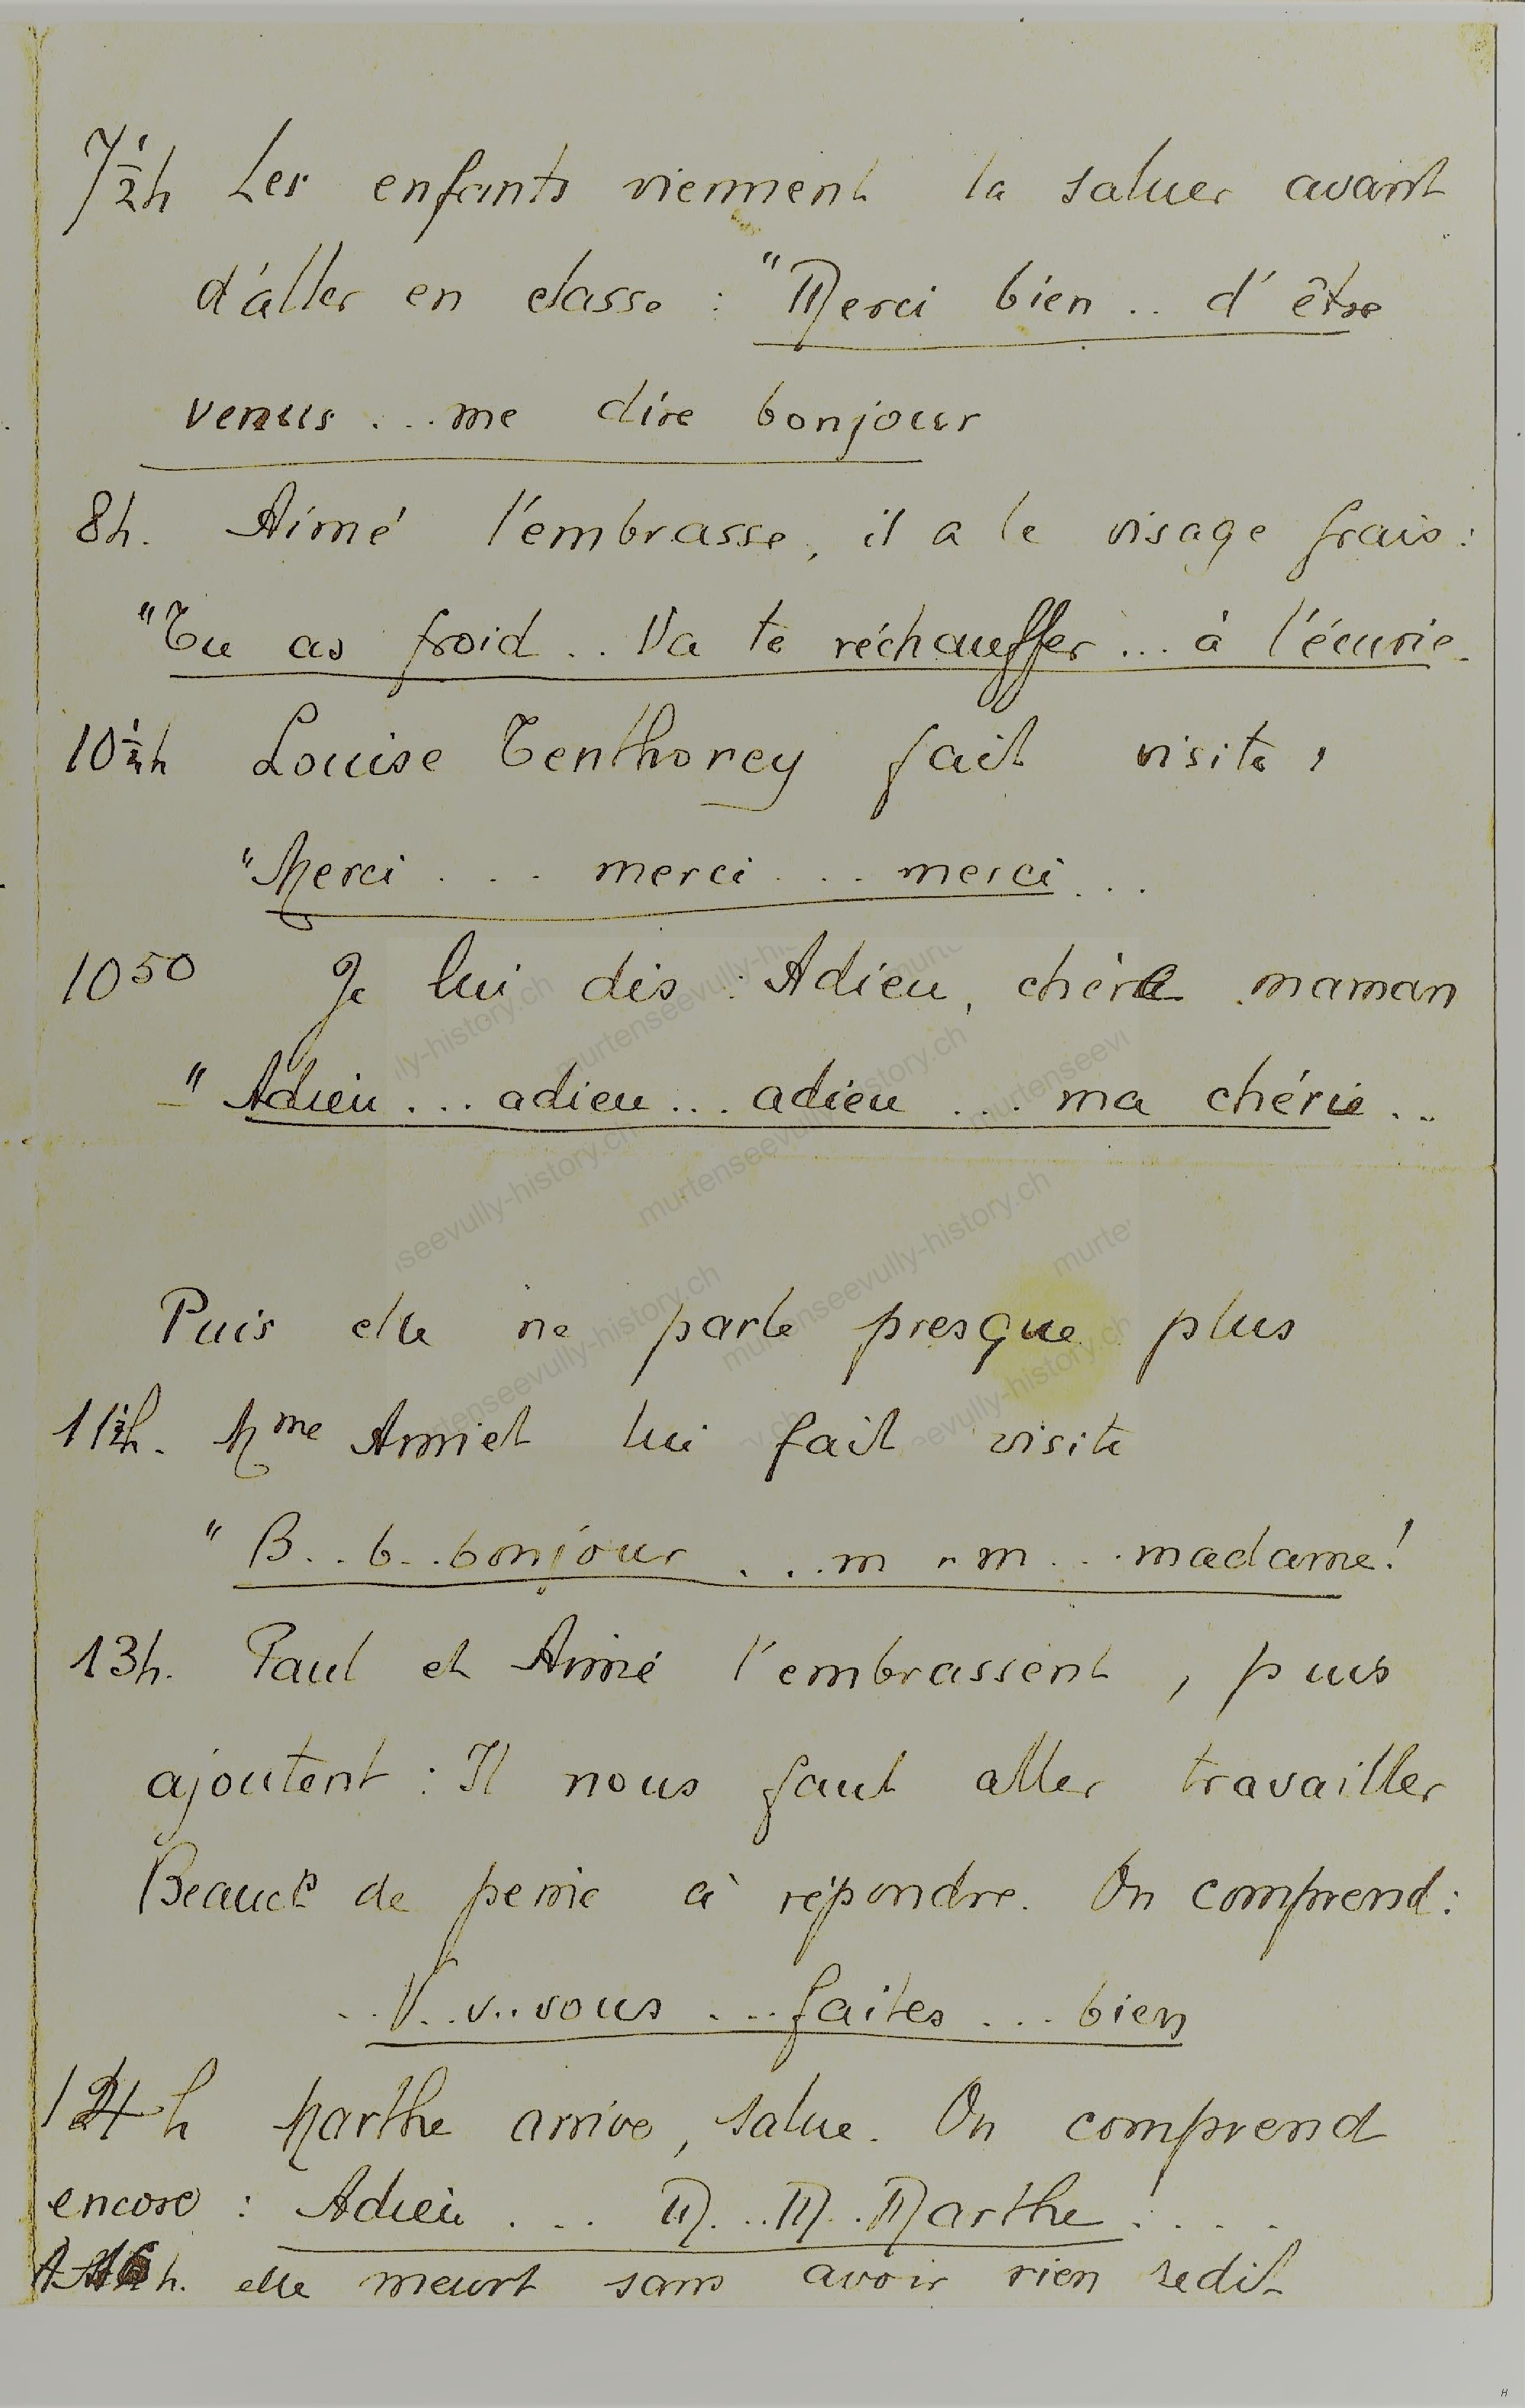 7½h Les enfants viennent la saluer avant
d'aller en classe : "Merci bien .. d'être
venus ... me dire bonjour
8h. Aimé l'embrasse, il a le visage frais :
"Tu as froid .. Va te réchauffer ... à l'écurie.
10½h Louise Tenthorey fait visite,
"Merci ... merci ... merci ...
10 50 Je lui dis : Adieu, chère maman
"Adieu ... adieu ... adieu ... ma chérie ...
Puis elle ne parle presque plus
11½h. Mme Amiet lui fait visite
"B.. b.. bonjour ... m .. m ... madame!
13h. Paul et Aimé l'embrassent, puis
ajoutent : Il nous faut aller travailler
Beaucp de peine à répondre. On comprend :
.. V.. v.. vous ... faites ... bien
14h Marthe arrive, salue. On comprend
encore : Adieu ... M... M.. Marthe! ....
A 16 h. elle meurt sans avoir rien redit
murtenseevully-history.ch